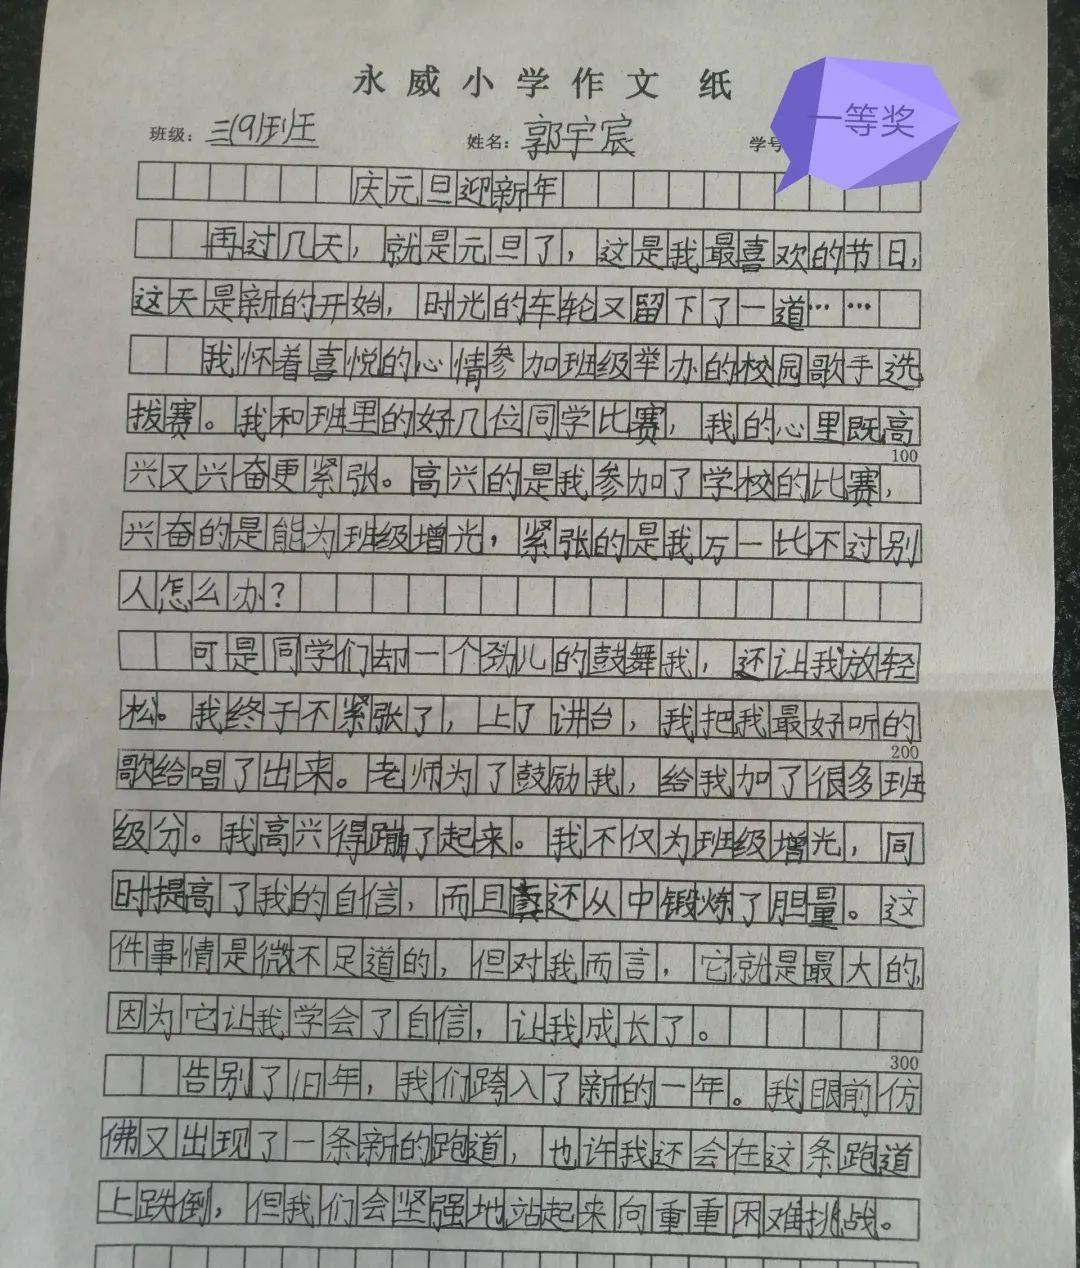 永威小学作文纸
一等奖
班级：三(9)班 姓名：郭宇宸 学号
庆元旦迎新年
再过几天，就是元旦了，这是我最喜欢的节日，
这天是新的开始，时光的车轮又留下了一道……
我怀着喜悦的心情参加班级举办的校园歌手选
拔赛。我和班里的好几位同学比赛，我的心里既高
100
兴又兴奋更紧张。高兴的是我参加了学校的比赛，
兴奋的是能为班级增光，紧张的是我万一比不过别
人怎么办？
可是同学们却一个劲儿的鼓舞我，还让我放轻
松。我终于不紧张了，上了讲台，我把我最好听的
200
歌给唱了出来。老师为了鼓励我，给我加了很多班
级分。我高兴得蹦了起来。我不仅为班级增光，同
时提高了我的自信，而且还从中锻炼了胆量。这
件事情是微不足道的，但对我而言，它就是最大的，
因为它让我学会了自信，让我成长了。
300
告别了旧年，我们跨入了新的一年。我眼前仿
佛又出现了一条新的跑道，也许我还会在这条跑道
上跌倒，但我们会坚强地站起来向重重困难挑战。